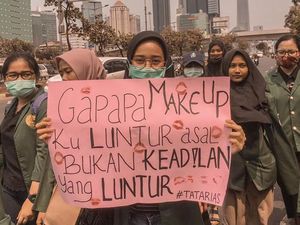 GAPAPA MAKE UP
KU LUNTUR asal
BUKAN KEADILAN
yang LUNTUR
#TATARIAS